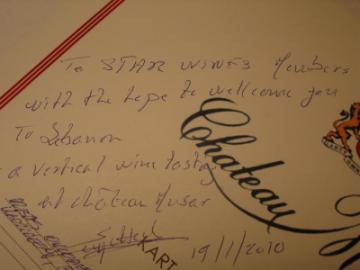 To STAR WINES Members
with the hope to wellcome you
To Lebanon
a vertical wine tasting
at château Musar
19/1/2010
Chateau
KART